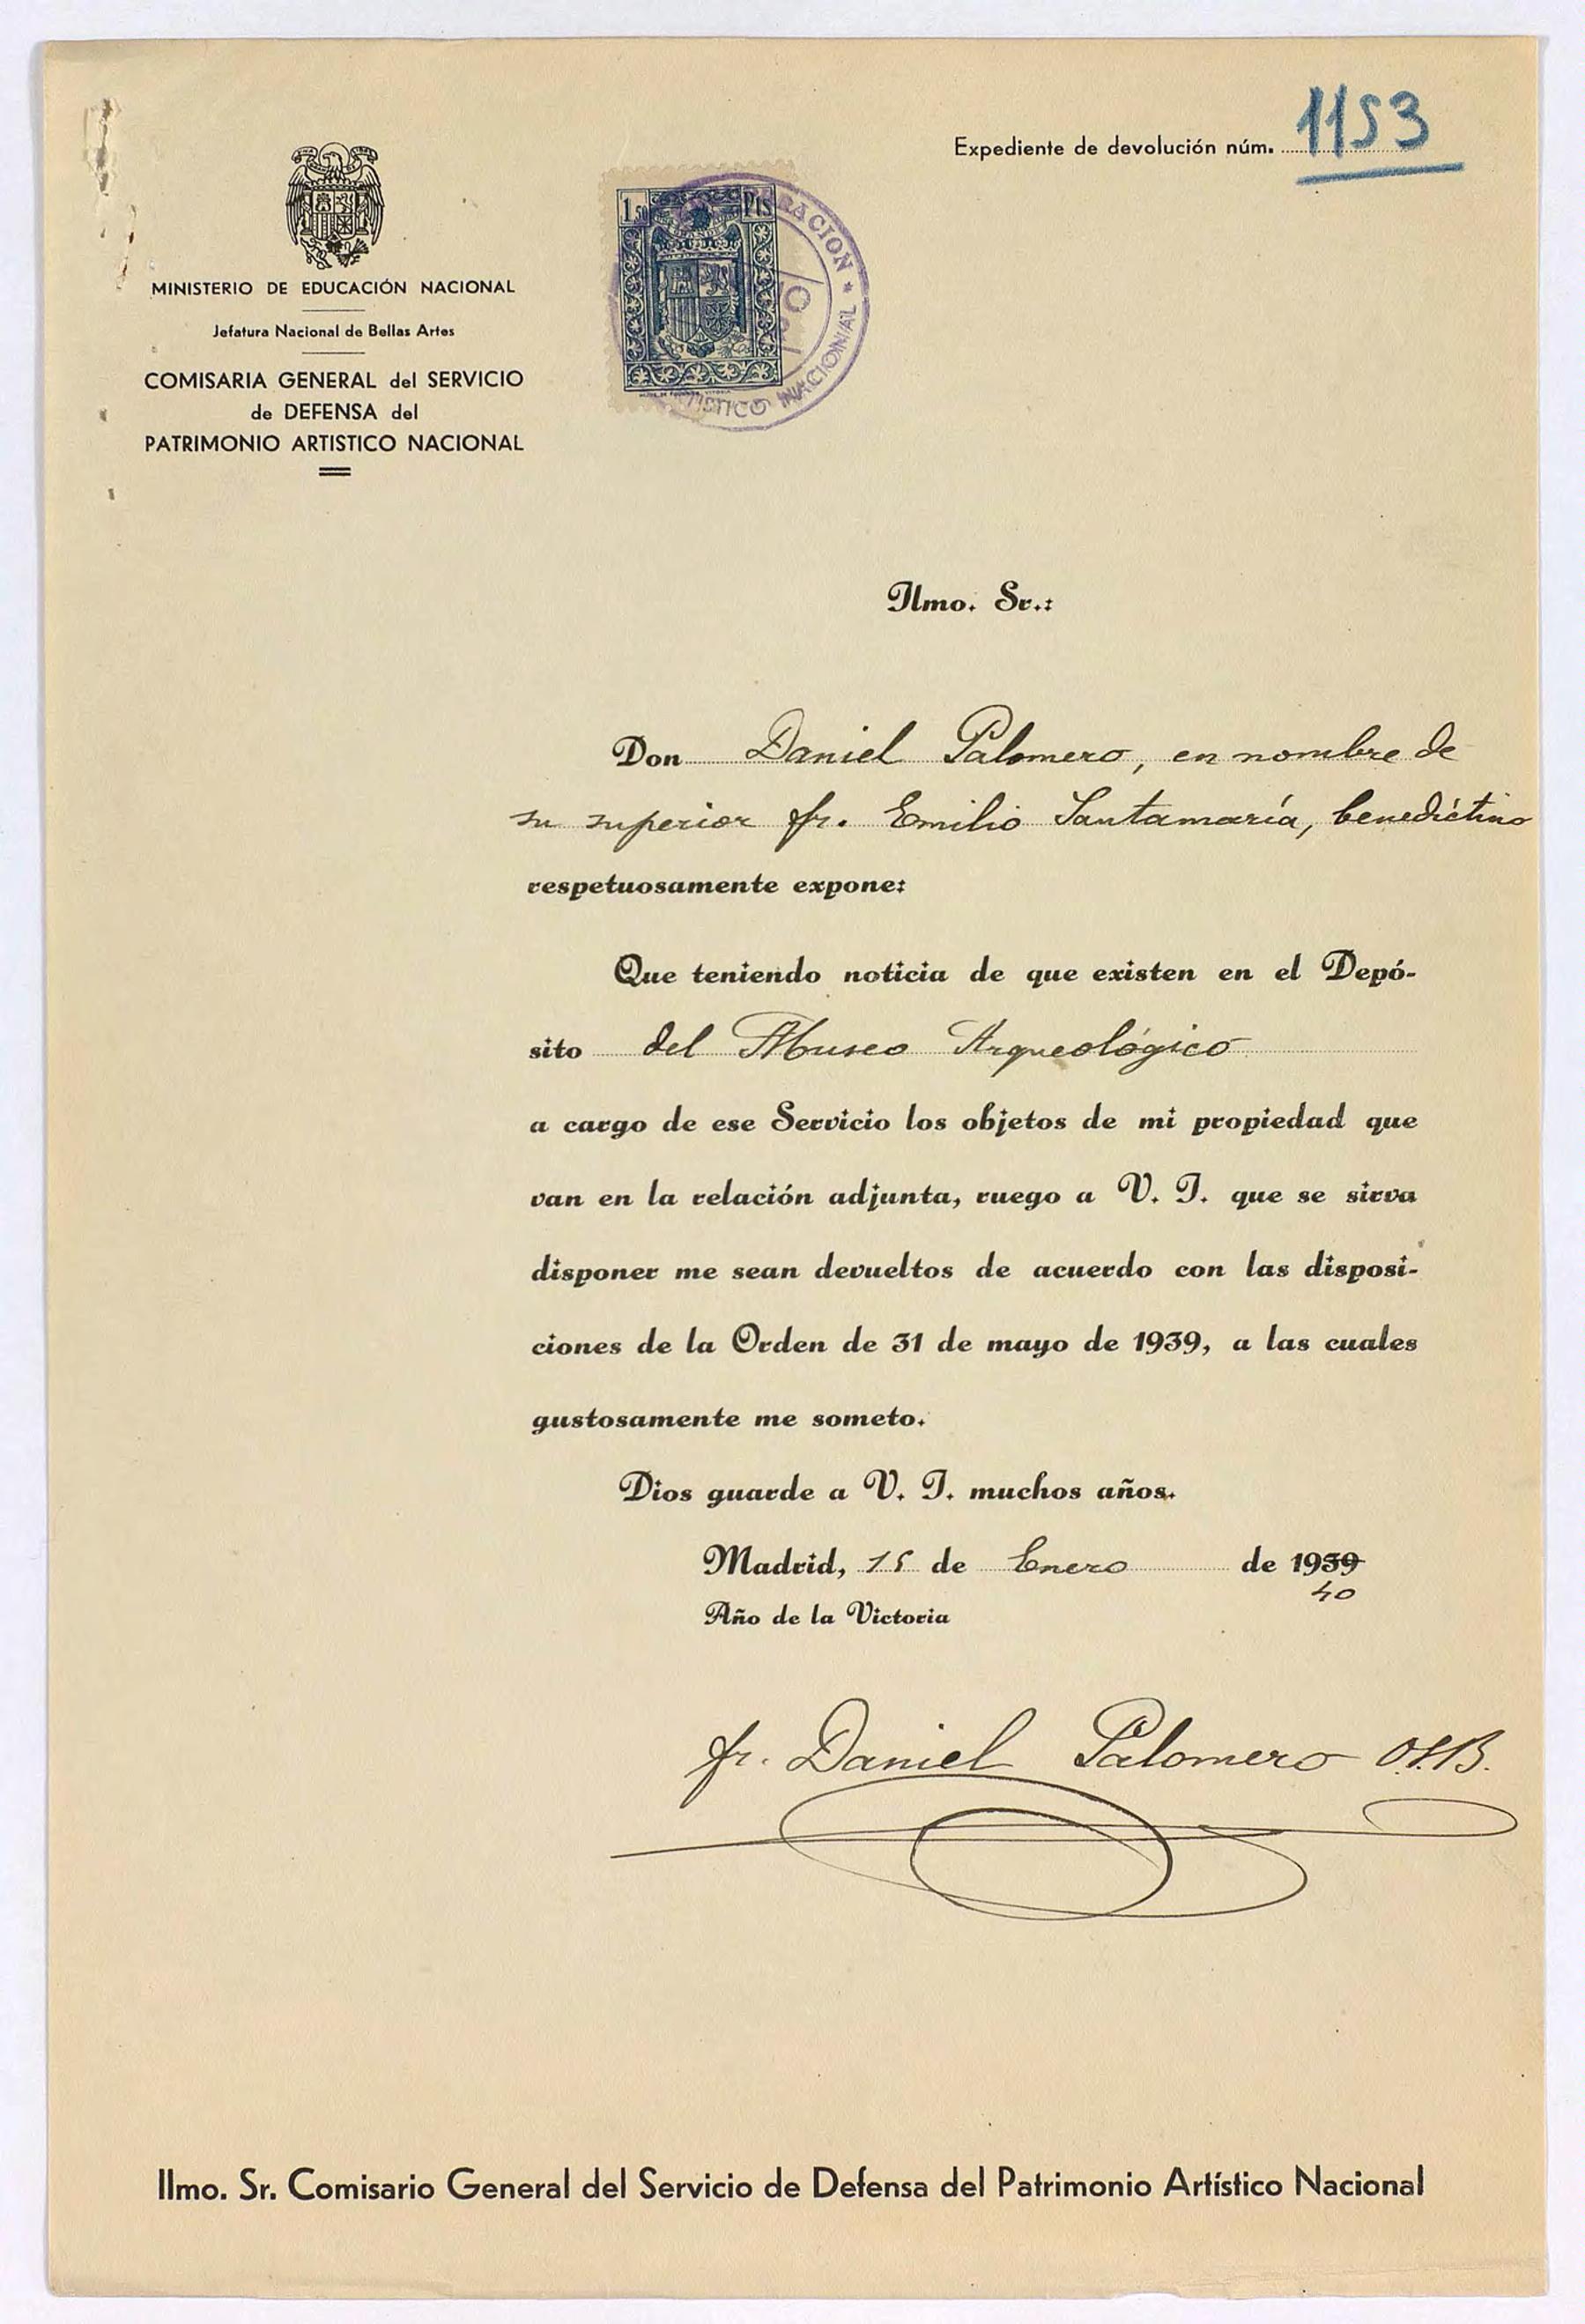 Expediente de devolución núm. 1153
MINISTERIO DE EDUCACIÓN NACIONAL
Jefatura Nacional de Bellas Artes
COMISARIA GENERAL del SERVICIO
de DEFENSA del
PATRIMONIO ARTISTICO NACIONAL
1,50 Pts
RACION * NACIONAL
Ilmo. Sr.:
Don Daniel Palomero, en nombre de
su superior fr. Emilio Santamaría, benedictino
respetuosamente expone:
Que teniendo noticia de que existen en el Depó-
sito del Museo Arqueológico
a cargo de ese Servicio los objetos de mi propiedad que
van en la relación adjunta, ruego a V. I. que se sirva
disponer me sean devueltos de acuerdo con las disposi-
ciones de la Orden de 31 de mayo de 1939, a las cuales
gustosamente me someto.
Dios guarde a V. I. muchos años.
Madrid, 15 de Enero de 1939
40
Año de la Victoria
fr. Daniel Palomero O.S.B.
Ilmo. Sr. Comisario General del Servicio de Defensa del Patrimonio Artístico Nacional